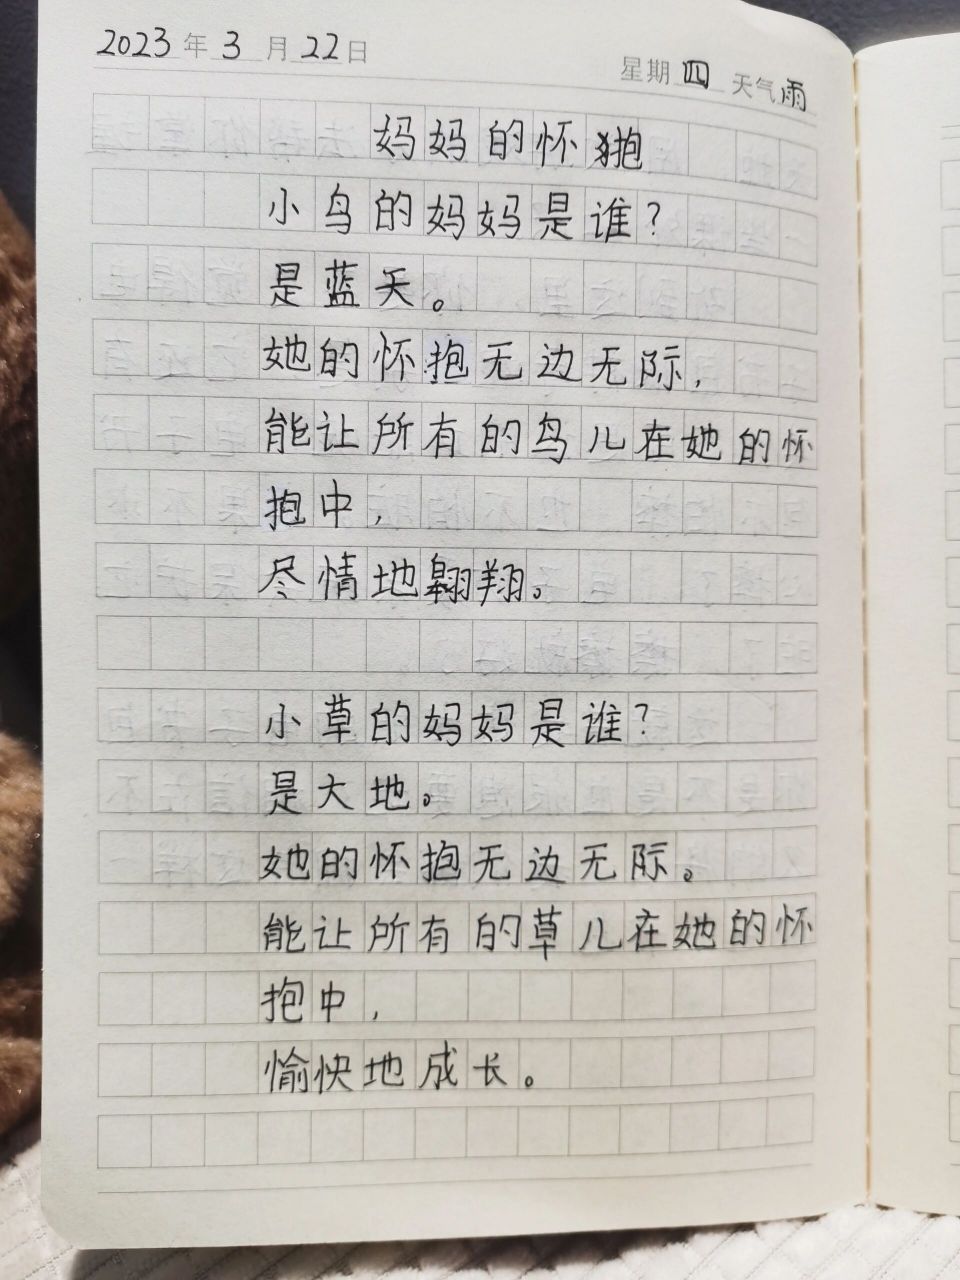 2023年3月22日 星期四 天气雨
妈妈的怀抱
小鸟的妈妈是谁?
是蓝天。
她的怀抱无边无际,
能让所有的鸟儿在她的怀
抱中,
尽情地翱翔。
小草的妈妈是谁?
是大地。
她的怀抱无边无际。
能让所有的草儿在她的怀
抱中,
愉快地成长。